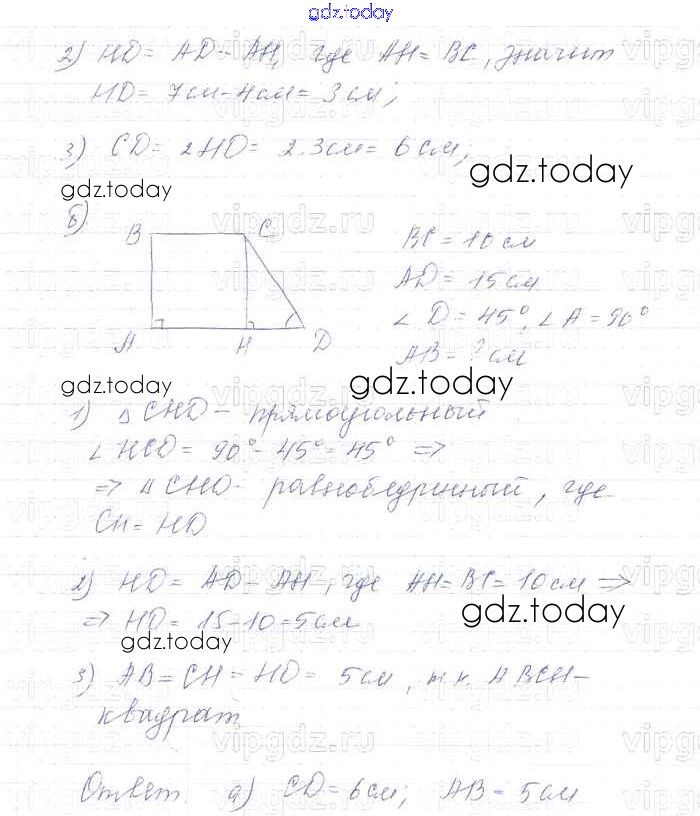 gdz.today
2) HD = AD - AH, где AH = BC, значит
HD = 7см - 4см = 3см;
3) CD = 2HD = 2·3см = 6см;
gdz.today
gdz.today
б)
B C
A H D
BC = 10 см
AD = 15 см
∠D = 45°, ∠A = 90°
AB = ? см
gdz.today
gdz.today
1) △CHD - прямоугольный
∠HCD = 90° - 45° = 45° ⇒
⇒ △CHD - равнобедренный, где
CH = HD
2) HD = AD - AH, где AH = BC = 10 см ⇒
⇒ HD = 15 - 10 = 5 см
gdz.today
gdz.today
3) AB = CH = HD = 5 см, т.к. ABCH -
квадрат
Ответ. а) CD = 6 см; AB = 5 см
vipgdz.ru